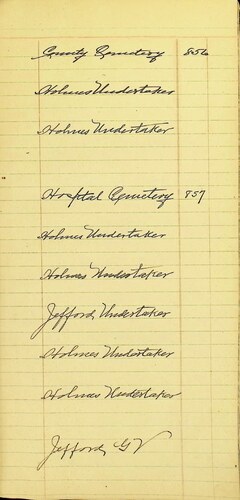 County Cemetery 856
Holmes Undertaker
Holmes Undertaker
Hospital Cemetery 857
Holmes Undertaker
Holmes Undertaker
Jefford, Undertaker
Holmes Undertaker
Holmes Undertaker
Jefford, G V